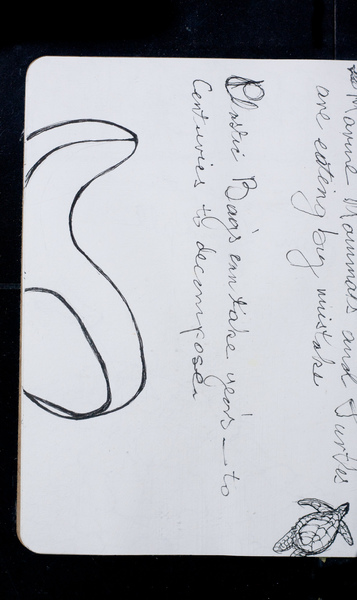 Marine Mammals and Turtles
are eating by mistake
Plastic Bags can take years — to
Centuries to decompose.